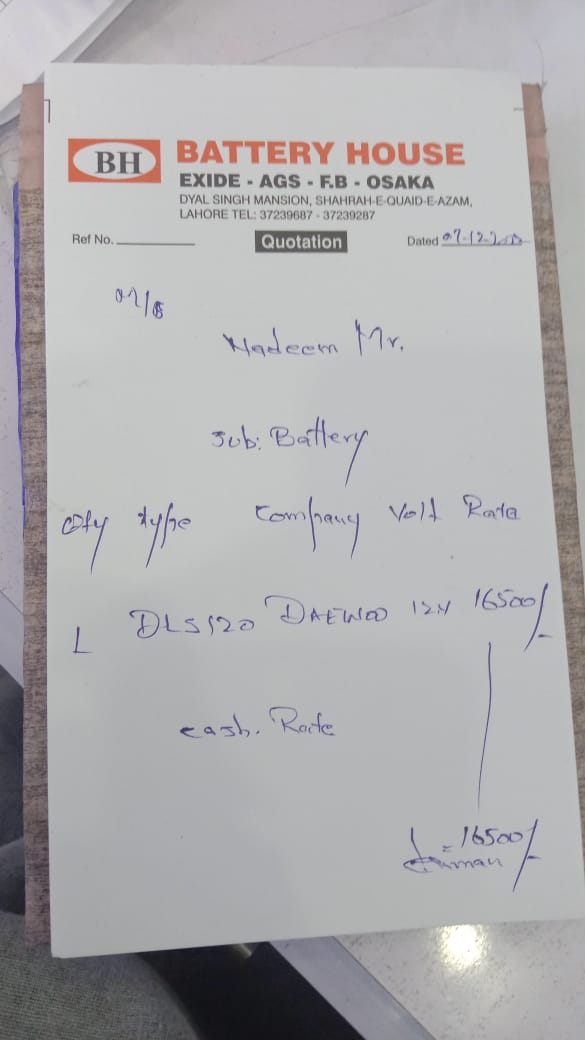 BH BATTERY HOUSE
EXIDE - AGS - F.B - OSAKA
DYAL SINGH MANSION, SHAHRAH-E-QUAID-E-AZAM,
LAHORE TEL: 37239687 - 37239287
Ref No. Quotation Dated 07-12-
M/s
Nadeem Mr.
Sub: Battery
Qty type Company Volt Rate
1 DLS120 DAEWOO 12V 16500/-
cash. Rate
= 16500/-